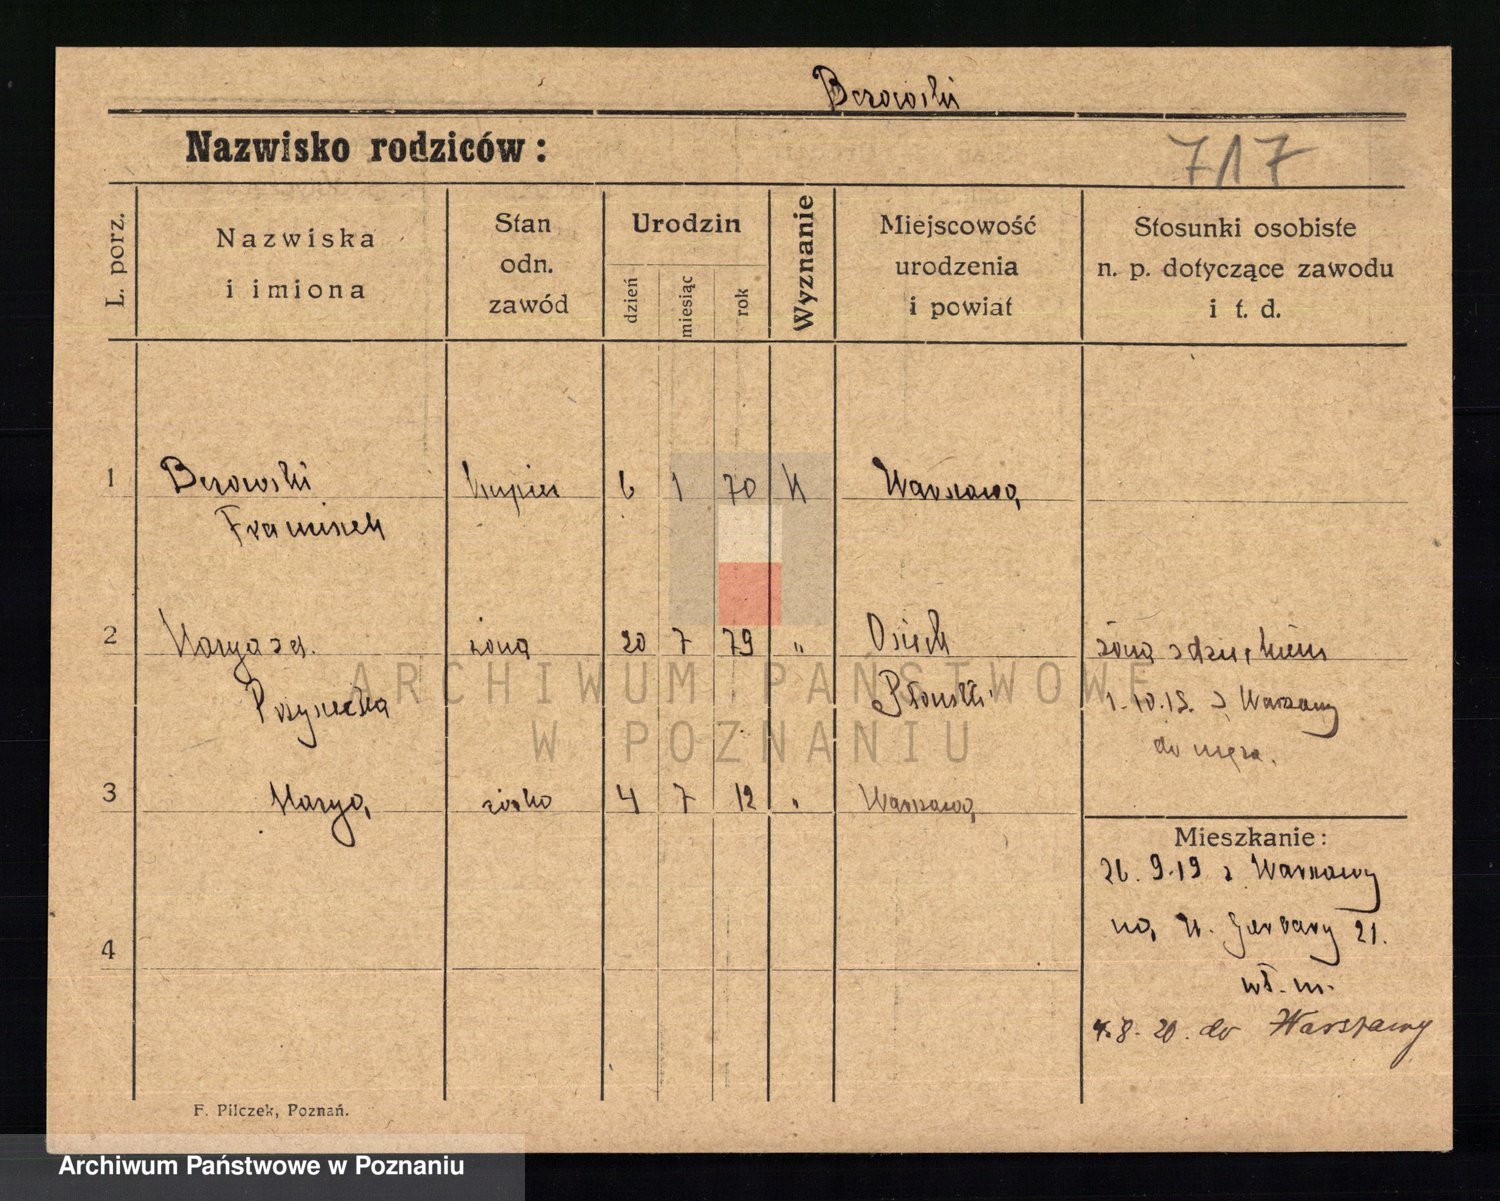 Berowski
Nazwisko rodziców :
717
L. porz.
Nazwiska
i imiona
Stan
odn.
zawód
Urodzin
dzień
miesiąc
rok
Wyznanie
Miejscowość
urodzenia
i powiat
Stosunki osobiste
n. p. dotyczące zawodu
i t. d.
1 Berowski kupiec 6 1 70 K Warszawa
Franciszek
2 Marya z d. żona 20 7 79 " Osiek żona z dzieckiem
Płoński 1.10.19. z Warszawy
do męża.
3 Marya córka 4 7 12 " Warszawa
Mieszkanie :
26. 9.19 z Warszawy
na W. Garbary 21.
wł. m.
4
4.8.20. do Warszawy
F. Pilczek, Poznań.
ARCHIWUM PAŃSTWOWE
W POZNANIU
Archiwum Państwowe w Poznaniu